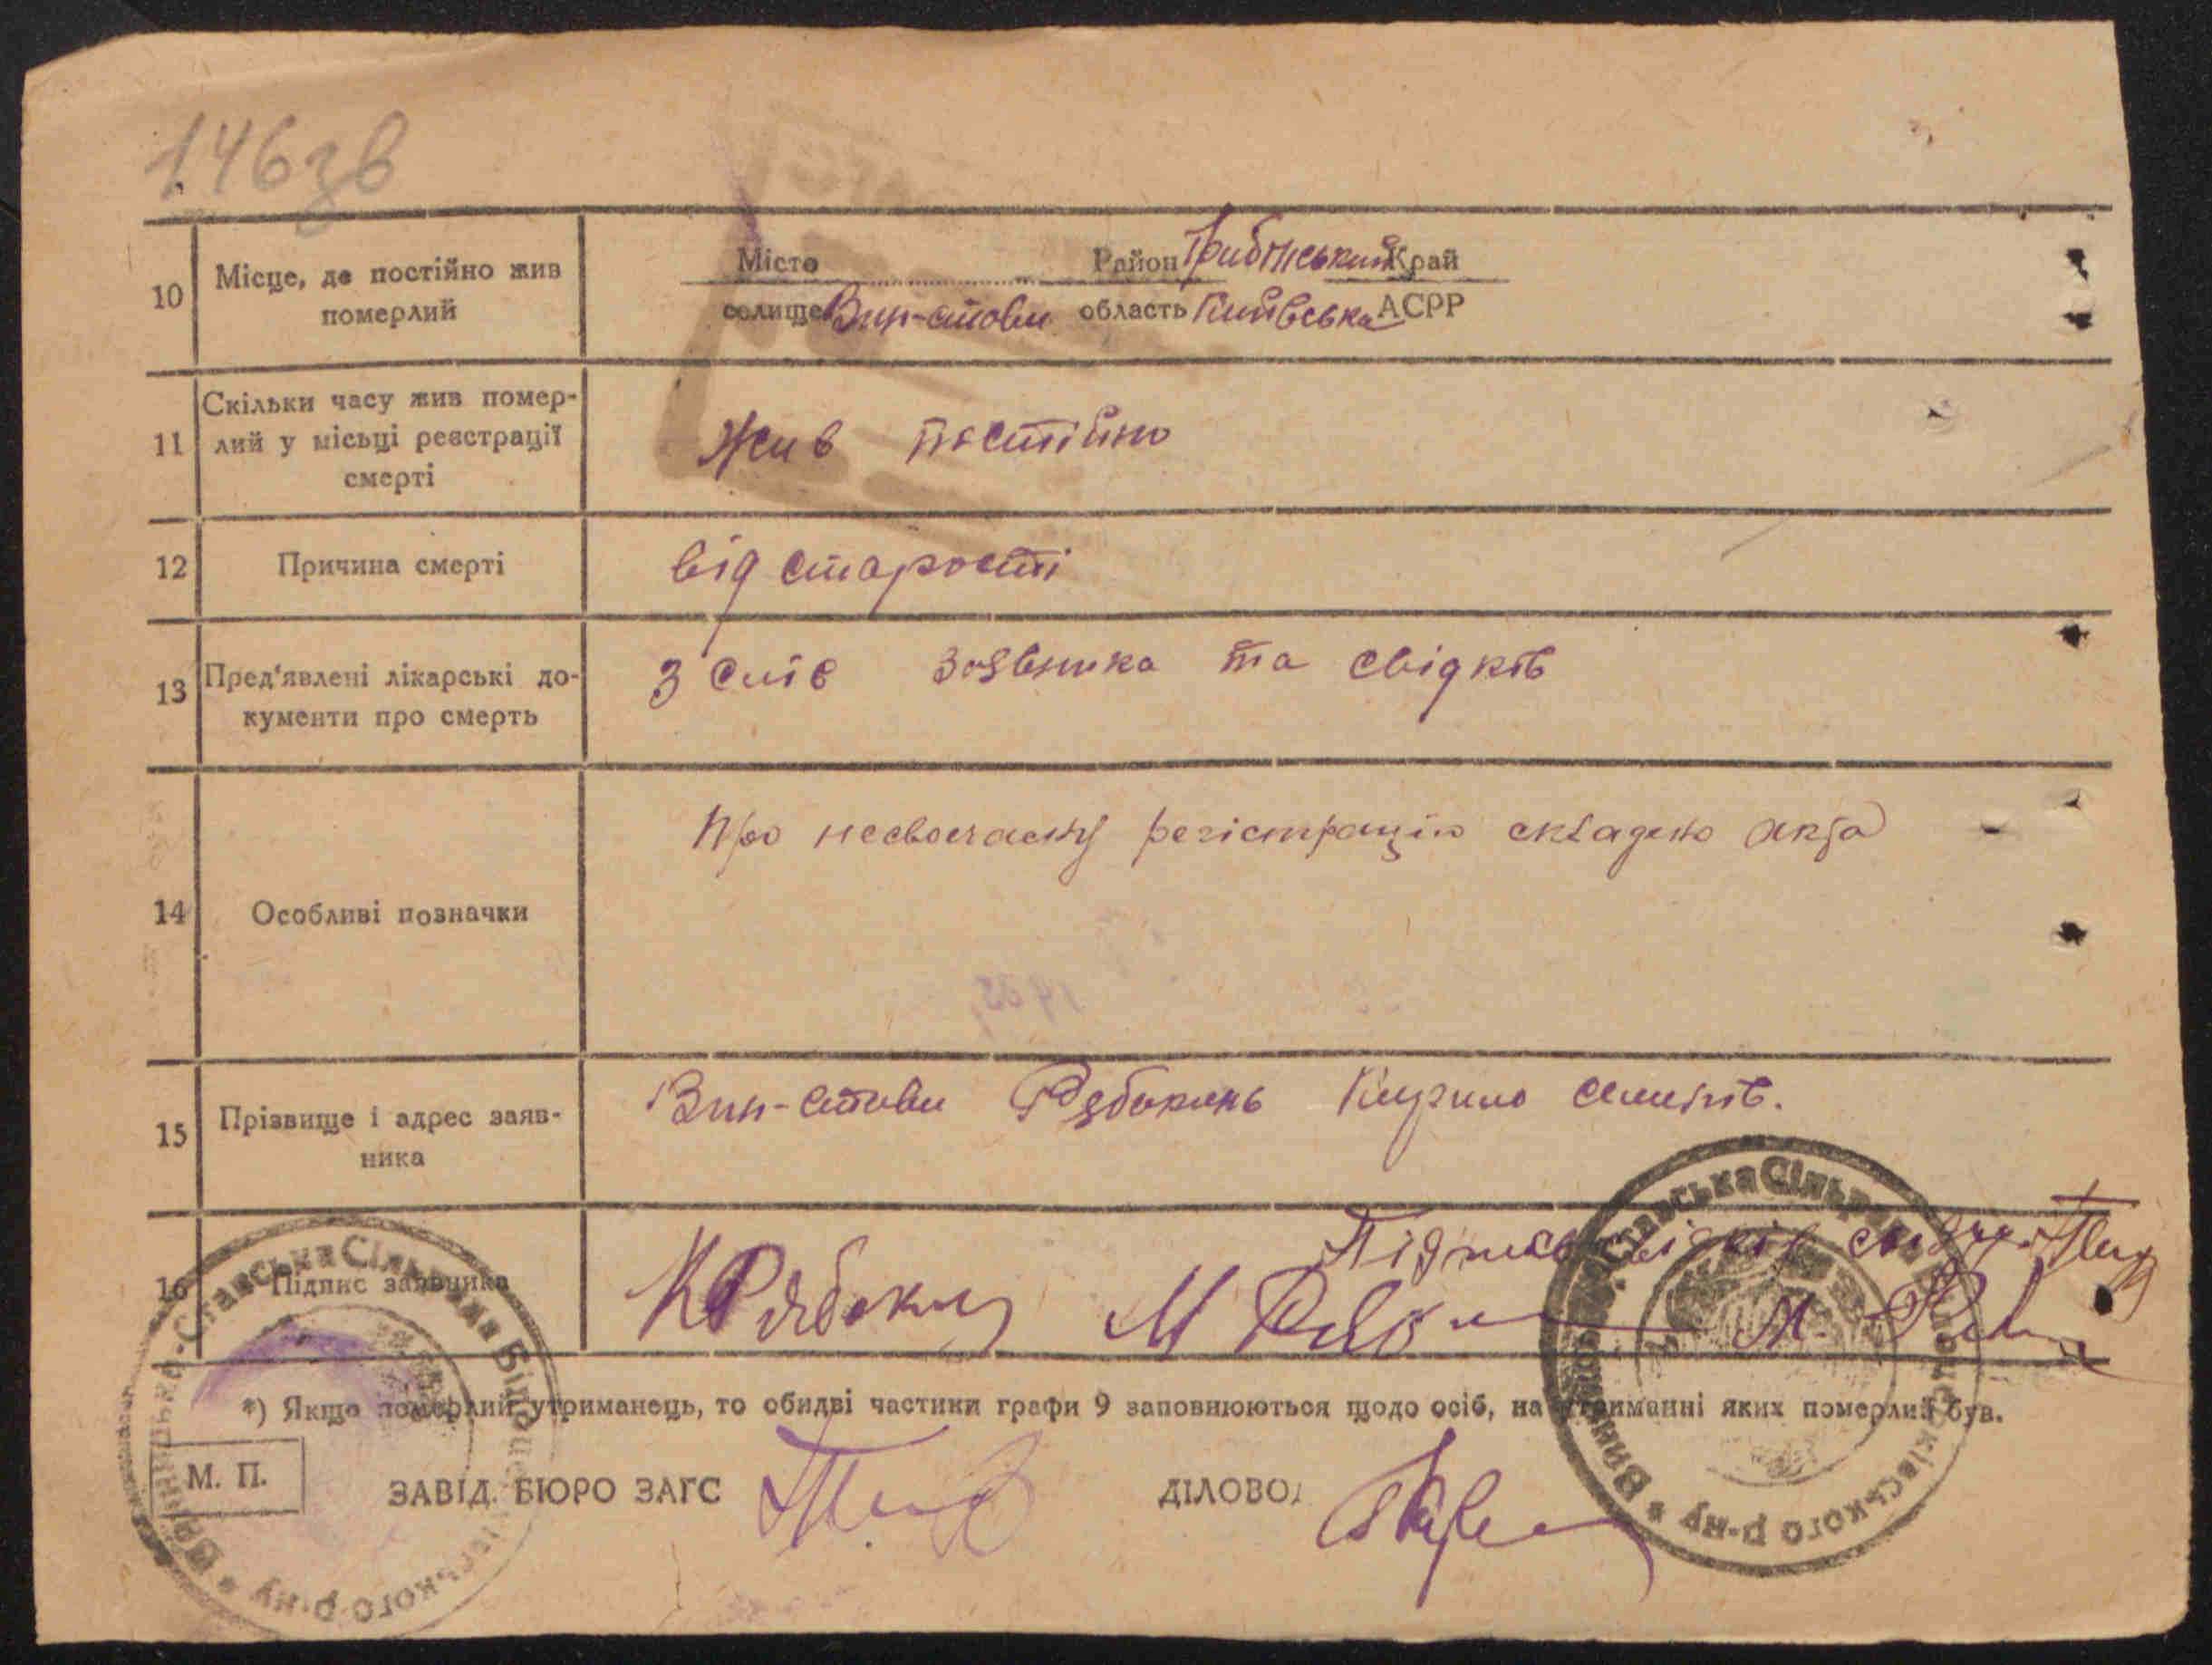 146зв
10 Місце, де постійно жив померлий
Місто Район Гребінський Край
селище Вин-стави область Київська АСРР
11 Скільки часу жив помер-
лий у місці реєстрації
смерті
Жив постійно
12 Причина смерті
від старості
13 Пред'явлені лікарські до-
кументи про смерть
З слів заявника та свідків
14 Особливі позначки
Про несвоечасну регістрацію складено акта
15 Прізвище і адрес заяв-
ника
Вин-стави Рябокинь Кирило
16 Підпис заявника
*) Якщо померлий утриманець, то обидві частини графи 9 заповнюються щодо осіб, на утриманні яких померлий був.
М. П.
ЗАВІД. БЮРО ЗАГС
ДІЛОВОД
Ставська Сільрада Білоцерківського р-ну